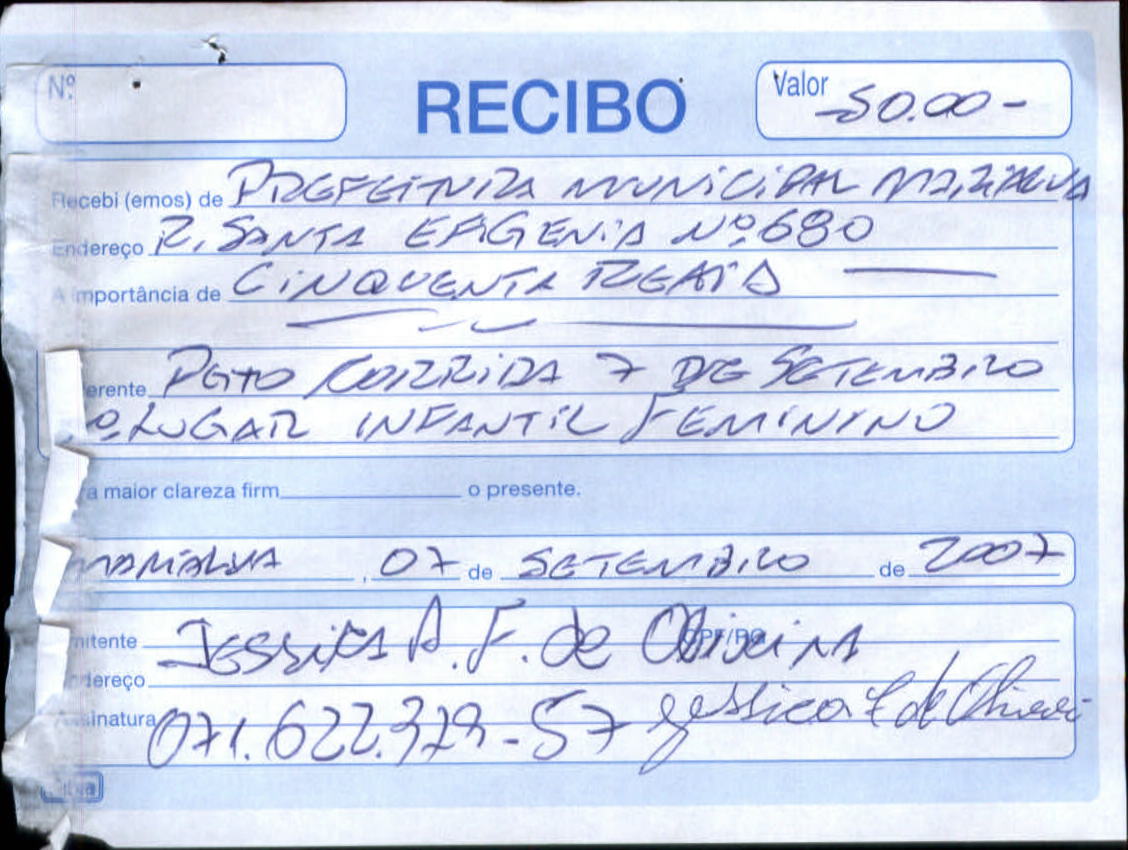 Nº
RECIBO
Valor 50.00-
Recebi (emos) de PREFEITURA MUNICIPAL MARIALVA
Endereço R. SANTA EFIGENIA Nº 680
A importância de CINQUENTA REAIS
erente PGTO CORRIDA 7 DE SETEMBRO
º LUGAR INFANTIL FEMININO
a maior clareza firm o presente.
MARIALVA , 07 de SETEMBRO de 2007
mitente JESSICA A. F. de Oliveira CPF/RG
dereço
sinatura 071.622.379-57 Jessica F de Oliveira